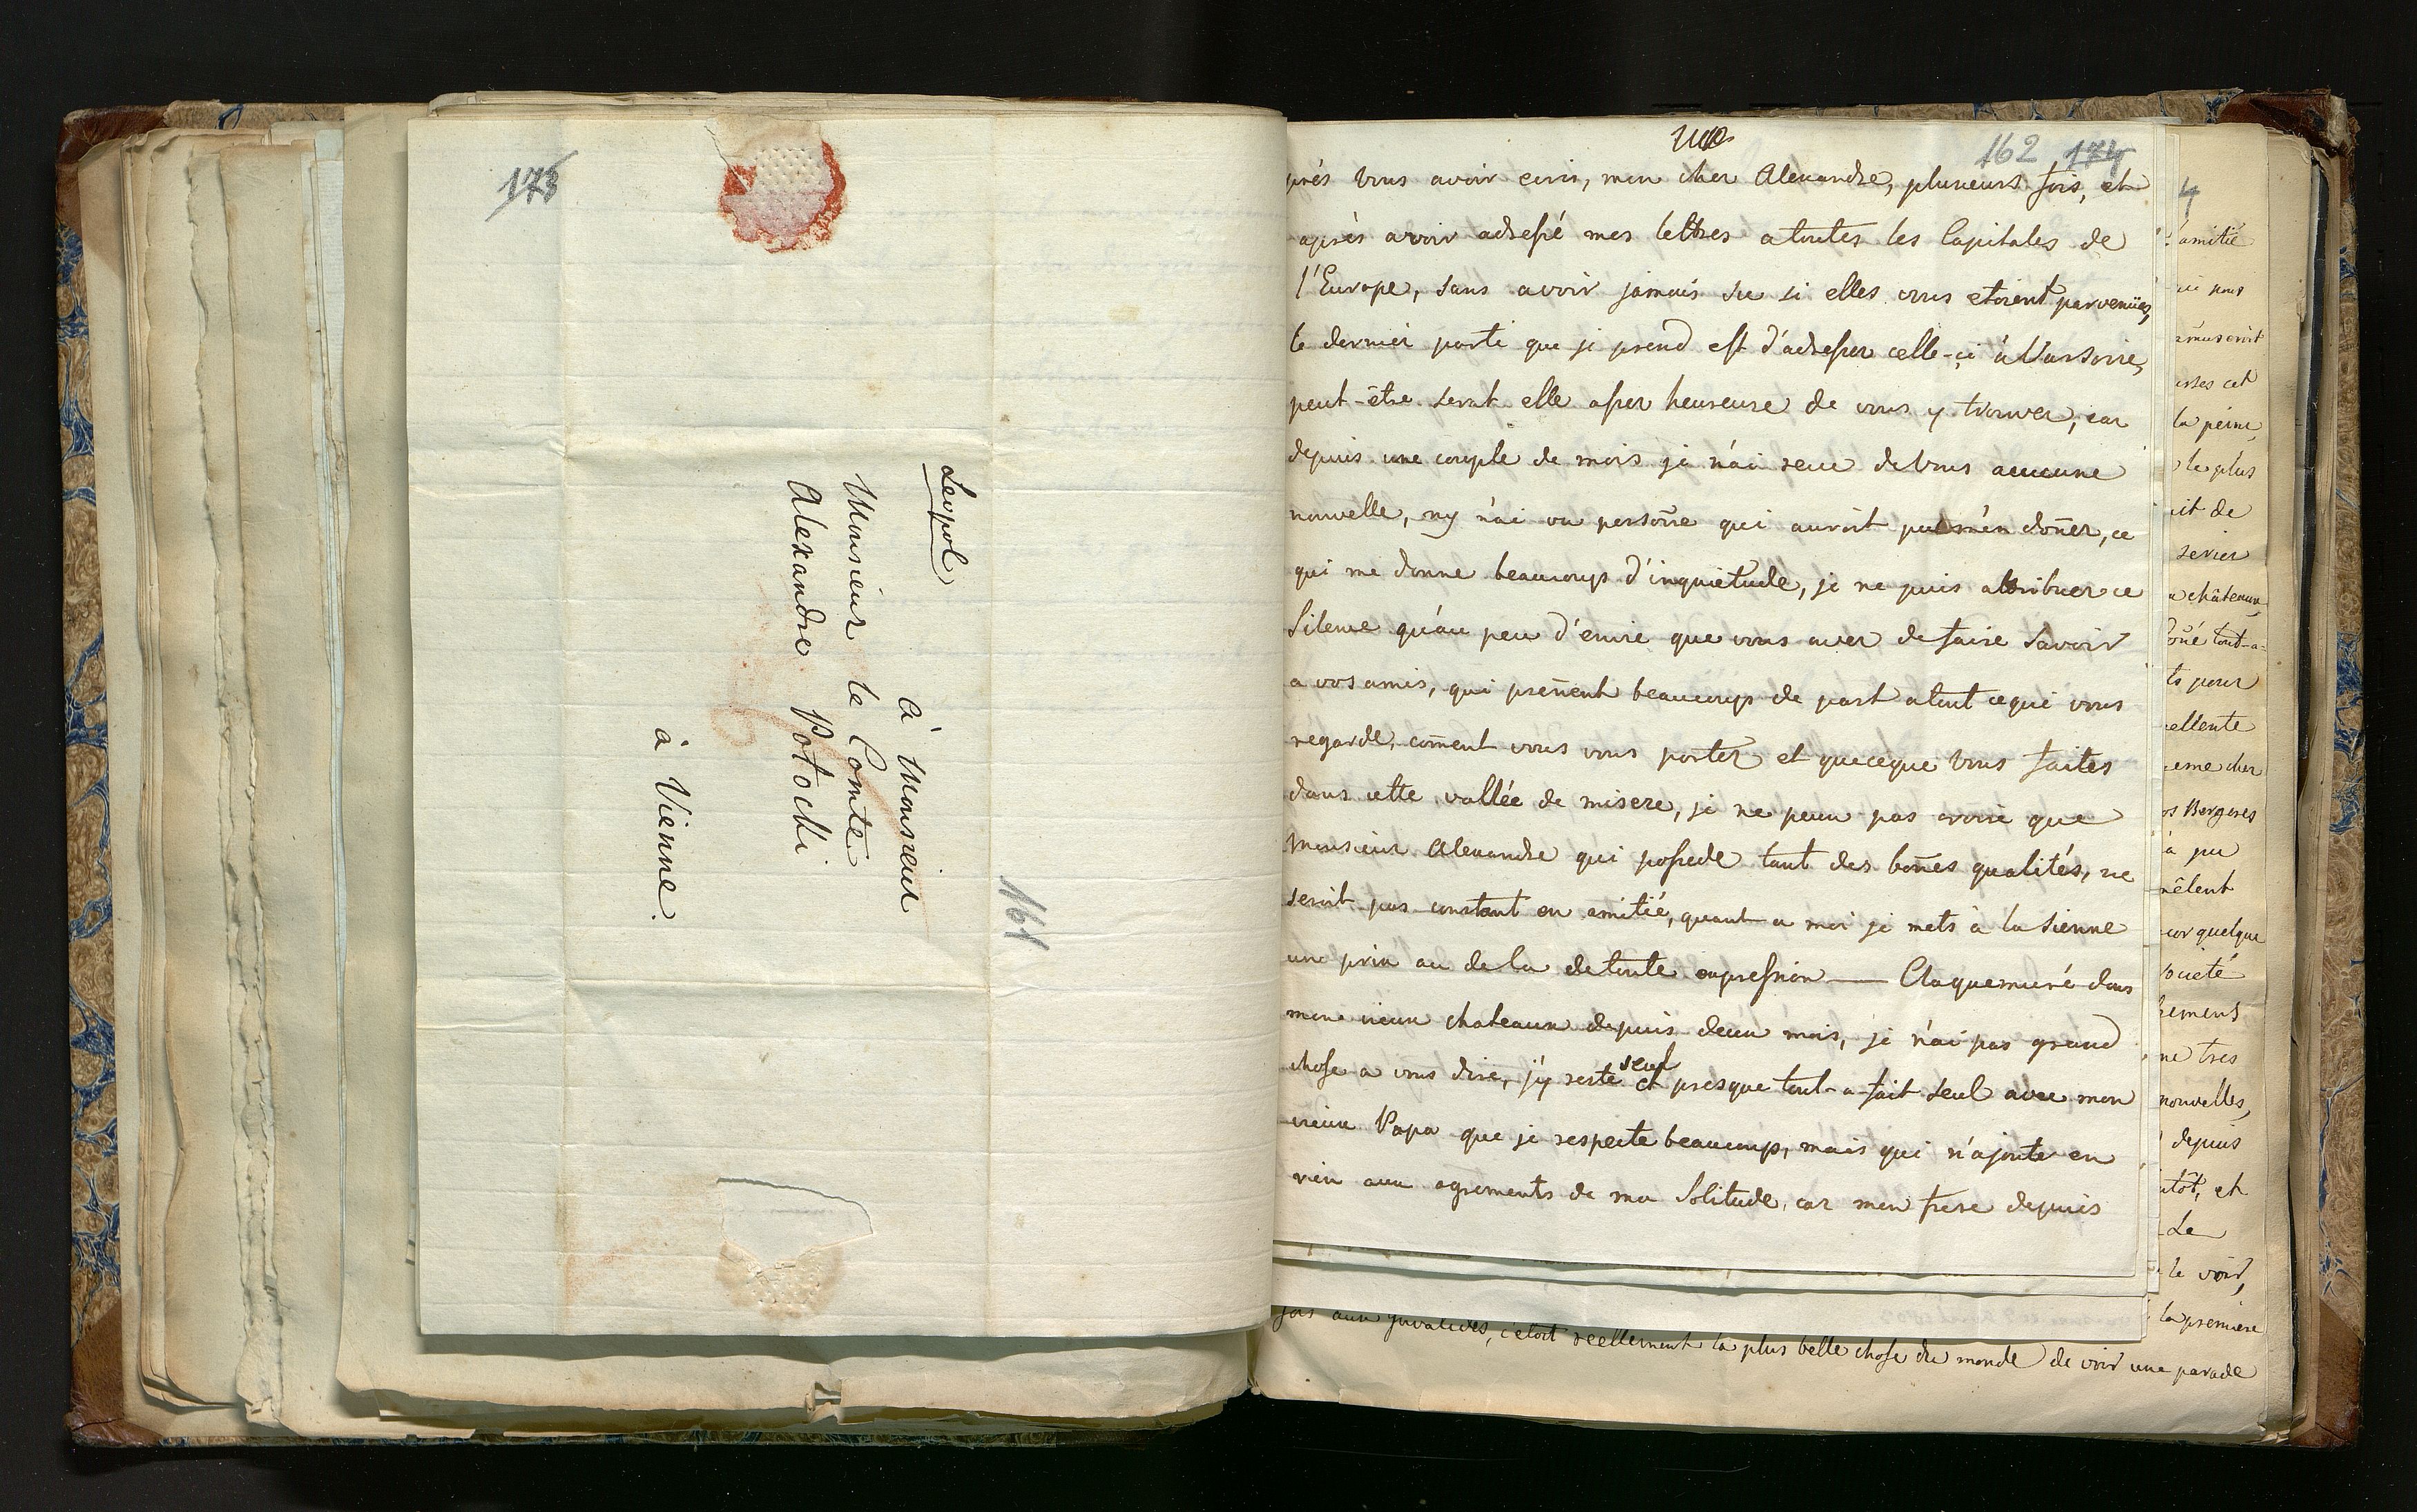 173
Leopol
à Monsieur
Monsieur le Comte
Alexandre Potocki
à Vienne.
161
162 174
près vous avoir ecris, mon cher Alexandre, plusieurs fois, et
après avoir adressé mes lettres a toutes les Capitales de
l'Europe, sans avoir jamais su si elles vous etoient parvenües,
le dernier parti que je prend est d'adresser celle-çi à Varsovie,
peut-être serat elle assez heureuse de vous y trouver, car
depuis une couple de mois je n'ai reçue de Vous aucune
nouvelle, ny n'ai vu persoñe qui auroit pu m'en doñer, ce
qui me donne beaucoups d'inquietude, je ne puis attribuer ce
Silence qu'au peu d'envie que vous avez de faire savoir
a vos amis, qui preñent beaucoups de part a tout ce qui vous
regarde, com̃ent vous vous portez et queceque Vous faites
dans cette vallée de misere, je ne peux pas croire que
Monsieur Alexandre qui possede tant des boñes qualités, ne
seroit pas constant en amitié, quant a moi je mets à la sienne
une prix au dela de toute expression — Claquemuré dans
mone vieux chateaux depuis deux mois, je n'ai pas grand
chose a vous dire, j'y reste seul et presque tout-a-fait seul avec mon
vieux Papa que je respecte beaucoups, mais qui n'ajoute en
rien aux agrements de ma Solitude, car mon frere depuis
4
amitié
amuseroit
la peine,
le plus
oit de
châteaux
tout-a-
pour
cellente
cher
Bergeres
à pu
mêlent
quelque
société
ne tres
nouvelles,
depuis
et
Le
le voir,
la premiere
aux invalides, c'etoit reellement la plus belle chose du monde de voir une parade